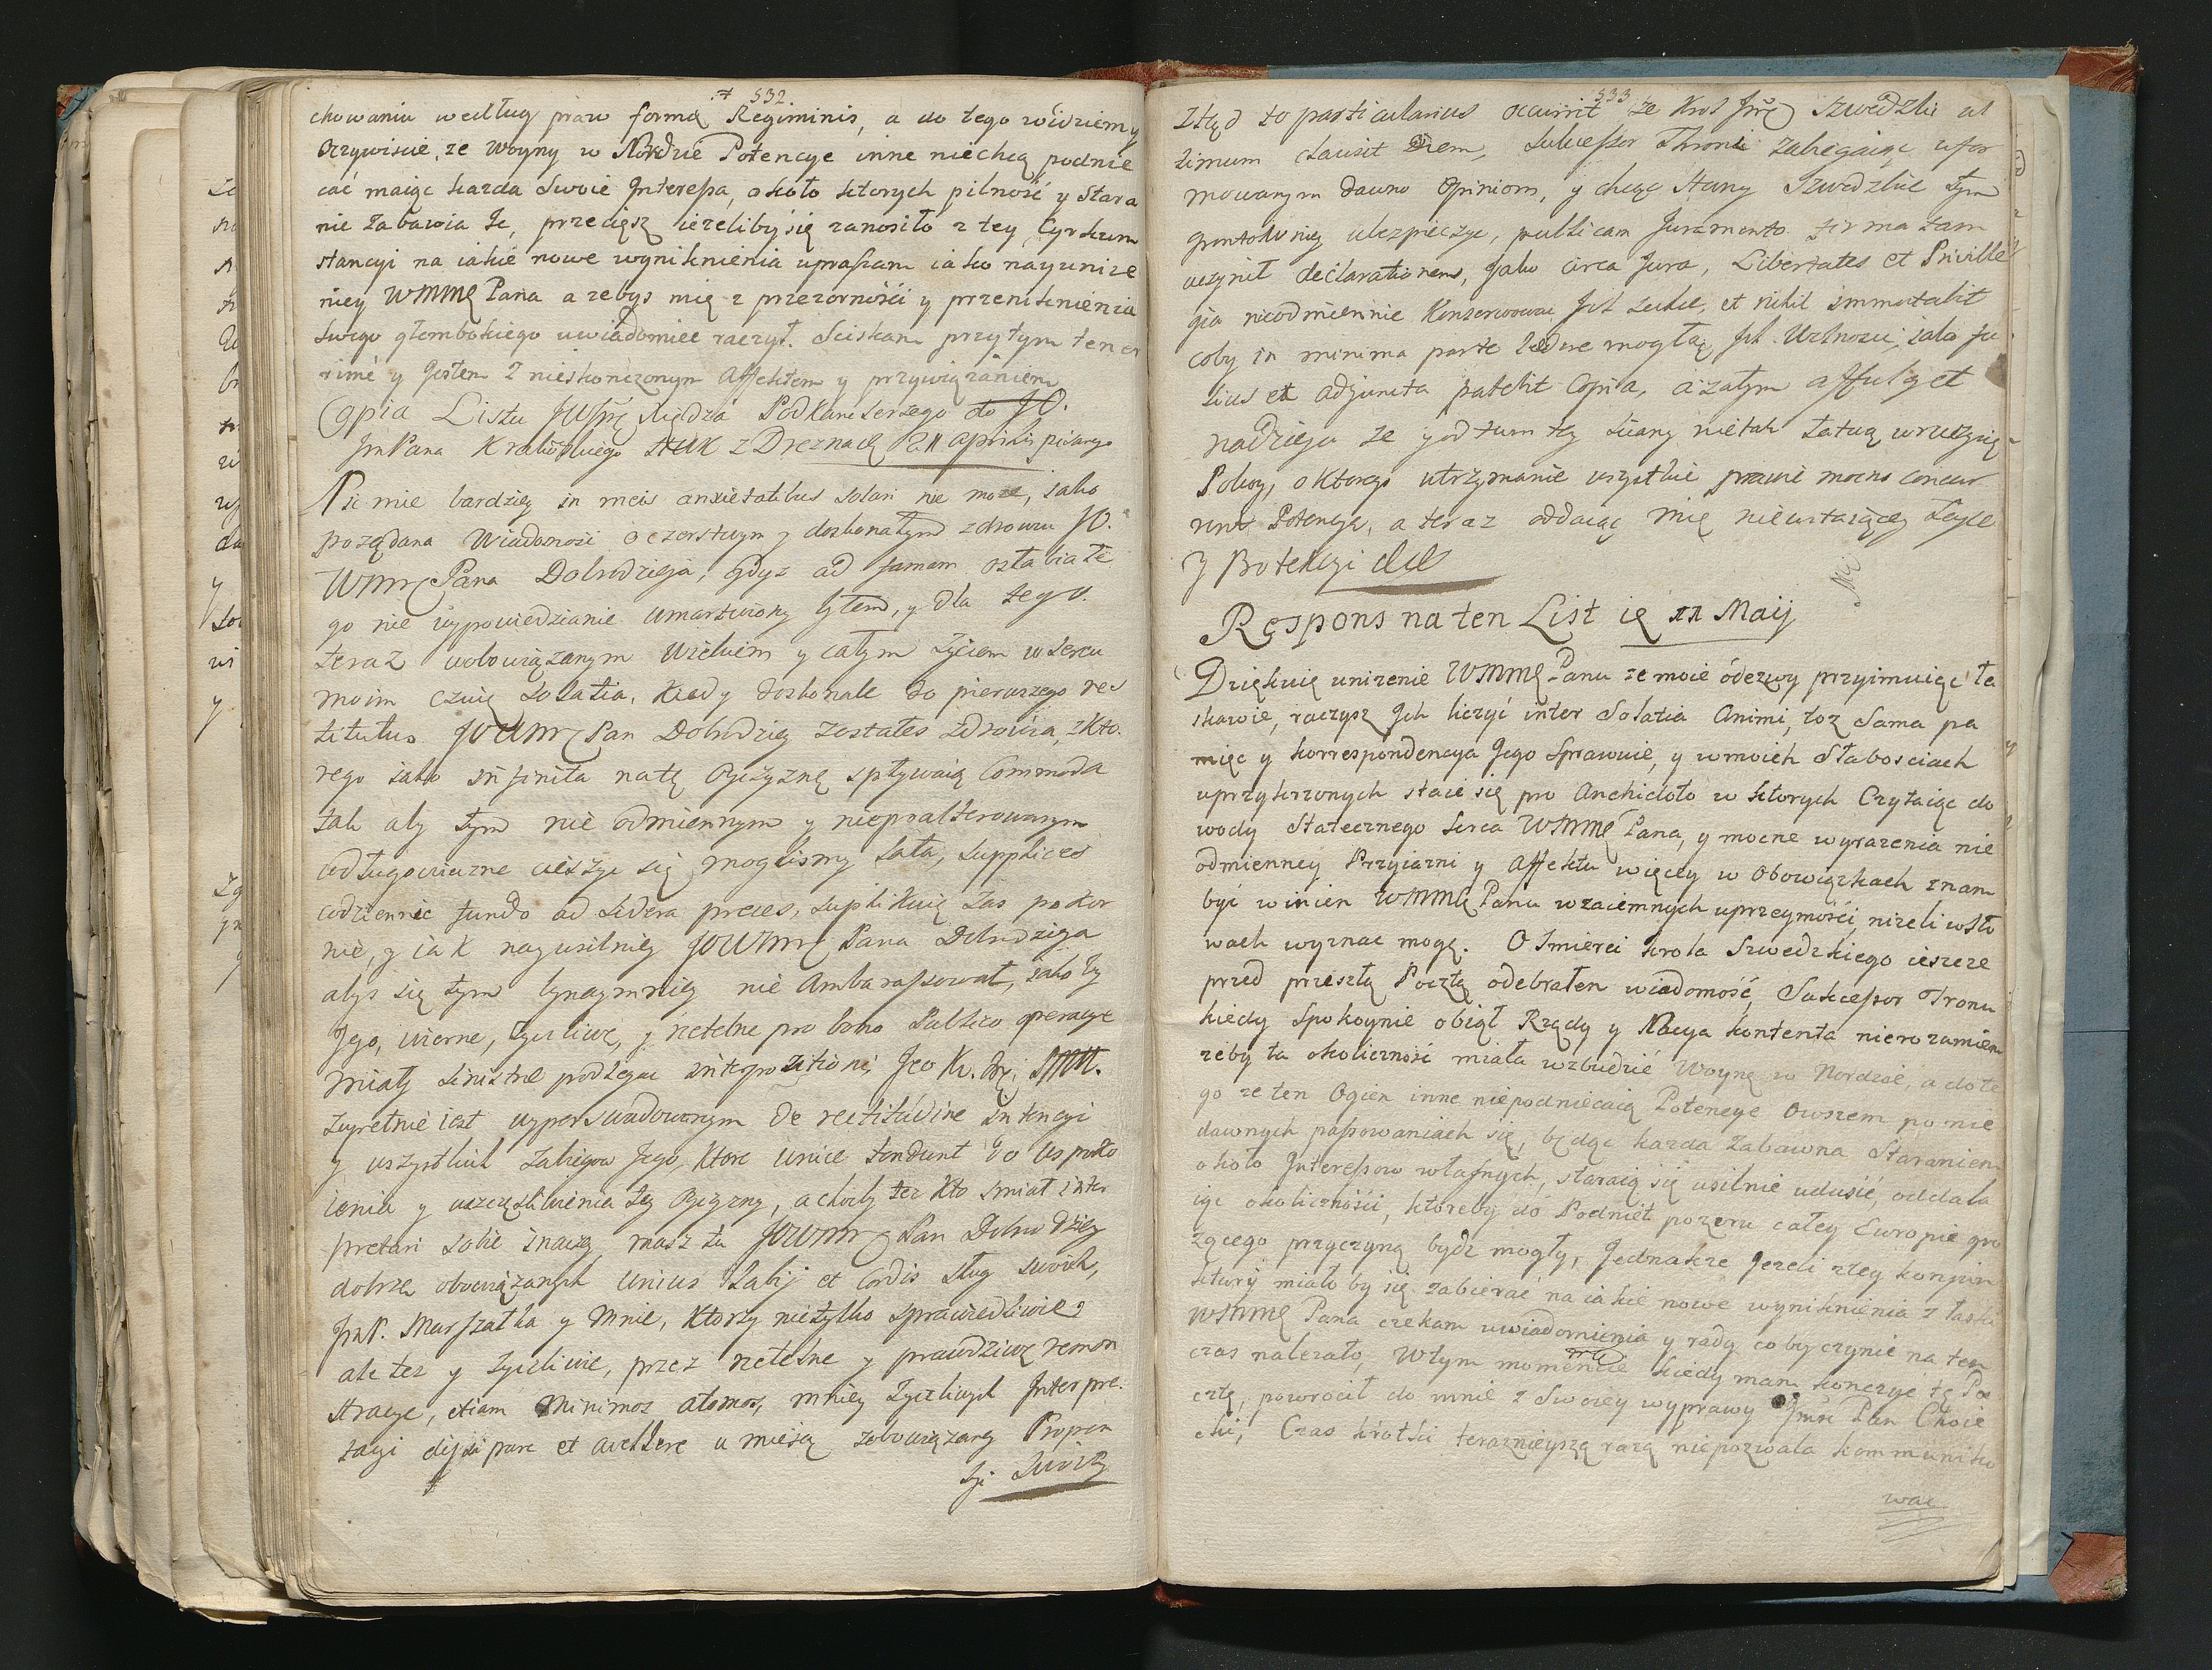 532
chowaniu według praw formą Regiminis, a do tego widziemy
Oczywiscie, ze Woyny w Nordzie Potencye inne niechcą podnie
cać maiąc kazda Swoie Interessa, około ktorych pilność y Stara
nie Zabawia Je, przecięsz iezeliby się zanosiło z tey Cyrkum
stancyi na iakie nowe wyniknienia upraszam iako nayunize
niey WMMę Pana azebys mię z przezorności y przeniknienia
Swego głembokiego uwiadomiec raczył. Sciskam przytym tene
rime y Jestem z nieskonczonym Affektem y przywiązaniem
Copia Listu JWJmę Xiędza Podkanclerzego do JO.
JmPana Krakowskiego HWK z Drezna 21 Aprilis pisanego
Nic mie bardziey in meis anxietatibus solari nie moze, iako
poządana Wiadomość o czerstwym y doskonałym zdrowiu JO.
WMM Pana Dobrodzieja, gdyz ad famam osłabiałe
go nie wypowiedzianie umartwiony byłem, y dla tego
teraz wobowiązanym Wielkiem y całym życiem w Sercu
moim czuię Solatia, kiedy doskonale do pierwszego res
titutus JOWM Pan Dobrodziey zostałes Zdrowia, z kto
rego iako infinita na tę Oyczyznę spływaią Commoda
tak aby tym nie odmiennym y nieprzalterowanym
w długowieczne cieszyc się moglismy lata, supplices
codziennie fundo ad Sidera preces, suplikuię zas pokor
nie, y iak nayusilniey JOWM Pana Dobrodzieja
abys się tym bynaymniey nie Ambarassował, iakoby
Jego, wierne, życzliwe, y rzetelne pro bono Publico operacye
miały sinistrae podlegac interpositioni, Jeo K. Mć, PNM.
zupełnie iest wyperswadowanym de rectitudine Intencyi
y wszystkich Zabiegow Jego, ktore unice tendunt do Uspoko
ienia y uszczęsliwienia tey Oyczyzny, a choćby tez kto smiał inter
pretari sobie inaczey masz tu JOWM Pan Dobrodziey
dobrze obowiązanych unius Labij et Cordis sług swoich,
JmP. Marszałka y Mnie, ktorzy nietylko sprawiedliwie
ale tez y życzliwie, przez rzetelne y prawdziwe remon
stracye, etiam minimos atomos, mniey życzliwych Interpre
tacyi dissipare et avellere umieią zobowiązaney Propen
syi Swoiey
533
Ztąd to particularius occurrit ze Krol Jmć Szwedzki ul
timum clausit Diem, Sukcessor Throni Zabiegaiąc ufor
mowanym dawno Opiniom, y chcąc Stany Szwedzkie tym
gruntowniey ubezpieczyc, publicam Juramento firmatam
uczynił declarationem, Jako circa Jura, Libertates et Privile
gia nieodmiennie Konserwowac Jch będzie, et nihil immutabit
coby in minima parte ledwie mogłą Jch Wolnosci, iako fu
sius et adjuncta patebit Copia, a zatym affulget
nadzieja ze y od tamtey Sciany nie tak łatwą wruszy się
Pokoy, o ktorego utrzymanie wszystkie prawie mocno concur
runt Potencye, a teraz oddaiąc mię nieustaiącey Łasce
y Protekcyi &c
Respons na ten List ię 11 Maij
Dziękuię unizenie WMMę Panu ze moie odezwy przyimuiąc ła
skawie, raczysz Jch liczyć inter Solatia Animi, toz Sama pa
mięc y korrespondencya Jego Sprawuie, y w moich Słabosciach
uprzykrzonych staie się pro Anthidoto w ktorych Czytaiąc do
wody Statecznego Serca WMMę Pana, y mocne wyrazenia nie
odmienney Przyiazni y Affektu więcey w Obowiązkach znam
być winien WMMę Panu wzaiemnych uprzeymości, nizeli w Sło
wach wyznac mogę. O Smierci krola Szwedzkiego ieszcze
przed przeszłą Pocztą odebrałem wiadomość, Sukcessor Tronu
kiedy Spokoynie obiął Rządy y Nacya kontenta nierozumiem
zeby ta okoliczność miała wzbudzić Woynę w Nordzie, a do te
go ze ten Ogien inne niepodniecaią Potencye Owszem po nie
dawnych passowaniach się, będąc kazda Zabawna Staraniem
około Interessow własnych, staraią się usilnie udusić, oddala
iąc okoliczności, ktoreby do Podniet pozeru całey Europie gro
zącego przyczyną bydz mogły, Jednakze Jezeli ztey konjun
ktury miało by się zabierać na iakie nowe wyniknienia z łaski
WMMę Pana czekam uwiadomienia y rady co by czynic na ten
czas nalezało, Wtym momencie kiedy mam konczyc tę Po
cztę, powrocił do mnie z Swoiey wyprawy Jmć Pan Choie
cki, Czas krotki teraznieyszą razą niepozwala kommuniko
wac